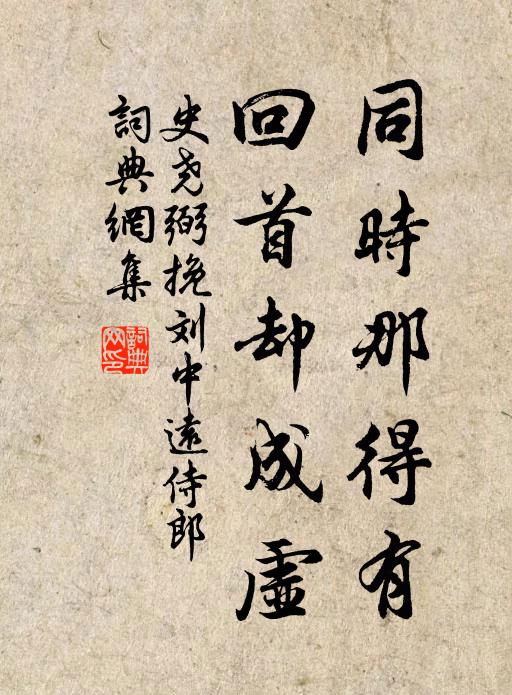 同時那得有
回首却成虛
史尧弼挽刘中遠侍郎
詞典網集
詞典网印